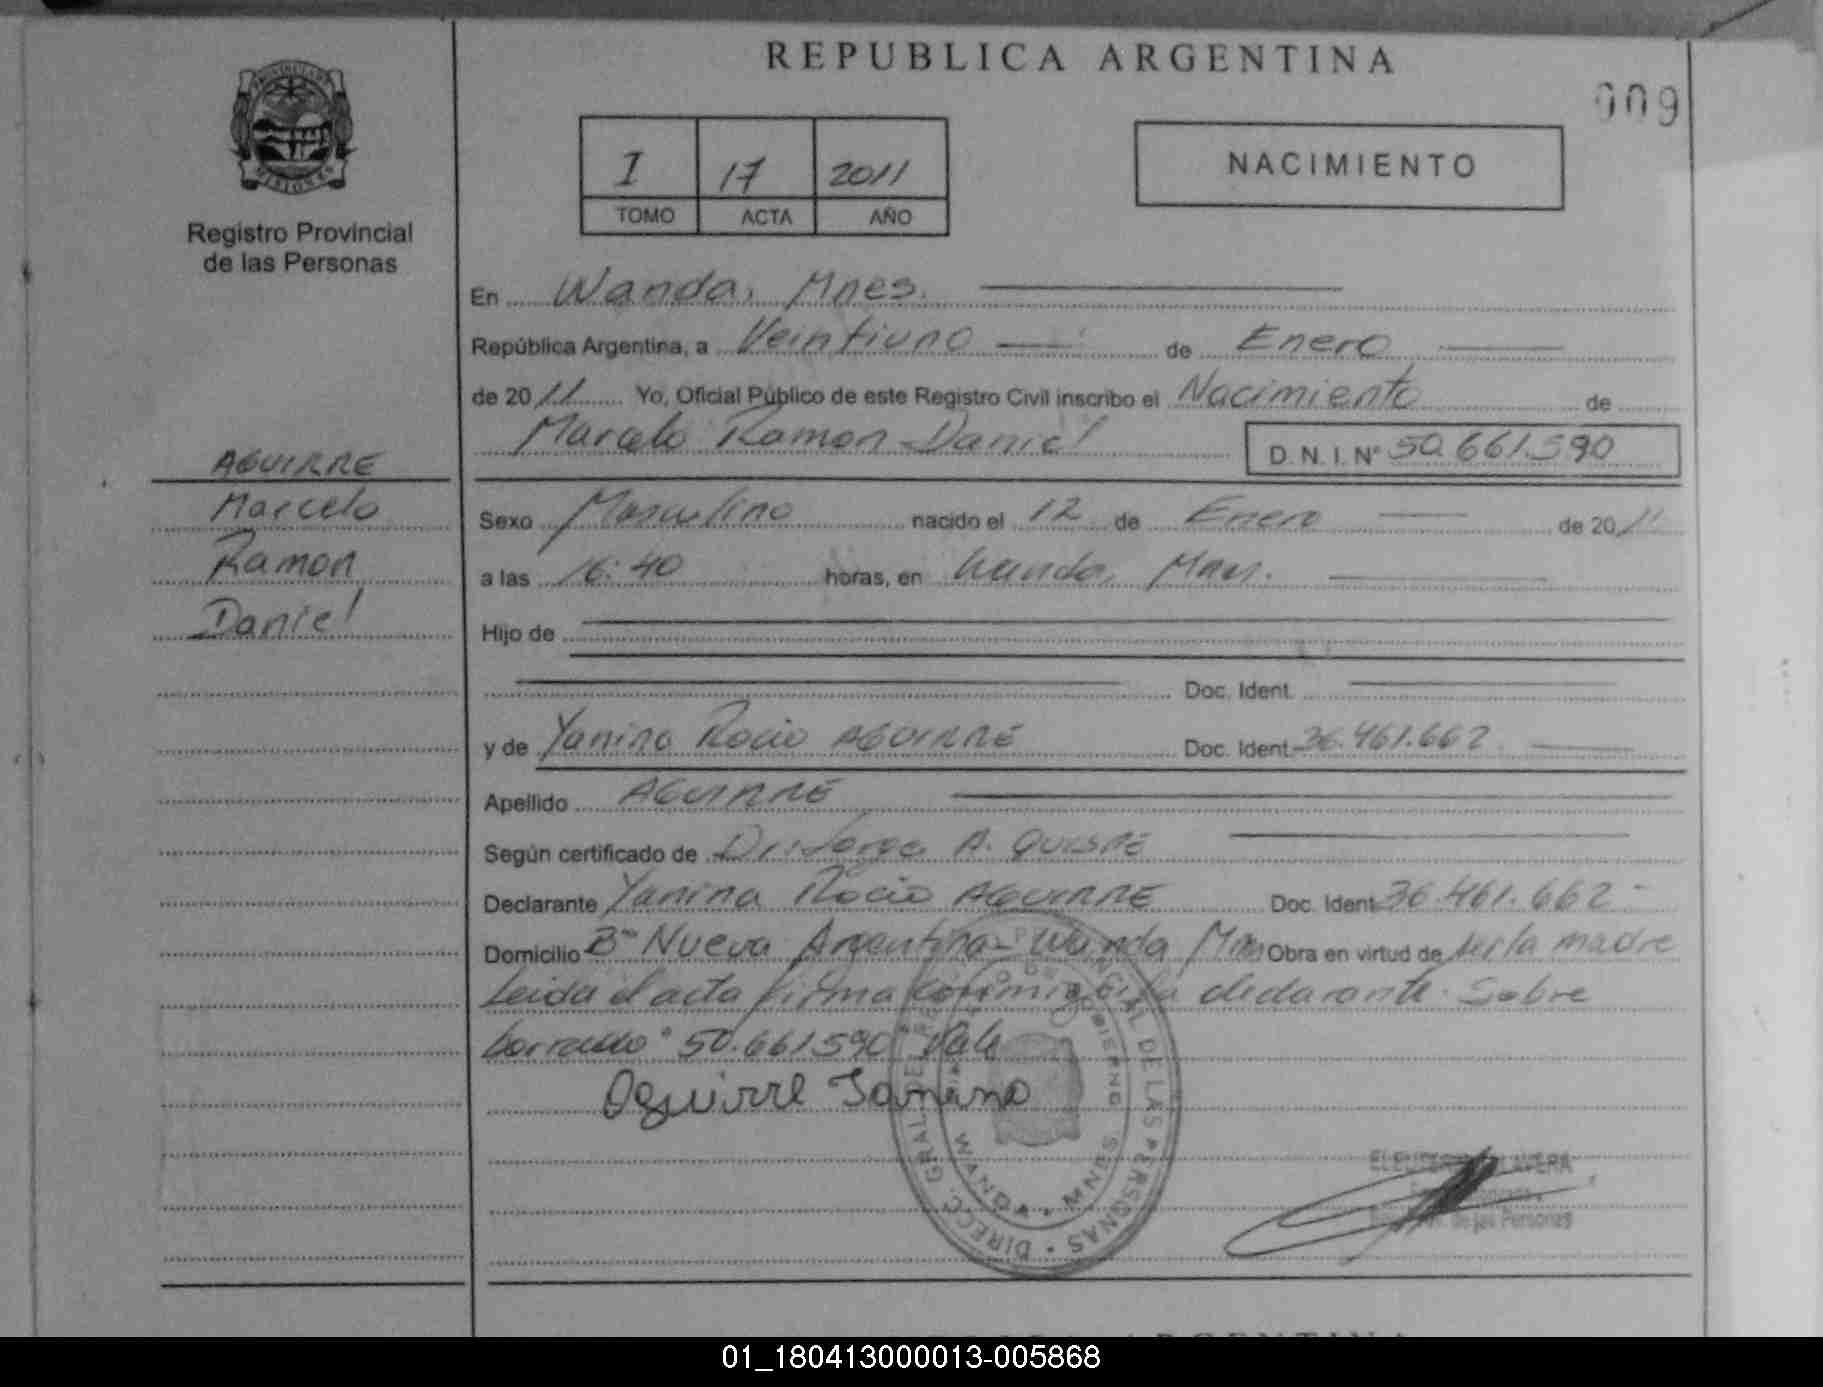 REPUBLICA ARGENTINA
009
PROVINCIA DE MISIONES
Registro Provincial
de las Personas
I 17 2011
TOMO ACTA AÑO
NACIMIENTO
En Wanda, Mnes.
República Argentina, a Veintiuno de Enero
de 2011 Yo, Oficial Público de este Registro Civil inscribo el Nacimiento de
Marcelo Ramon Daniel D.N.I.Nº 50.661.590
AGUIRRE
Marcelo
Ramon
Daniel
Sexo Masculino nacido el 12 de Enero de 2011
a las 16:40 horas, en Wanda, Mnes.
Hijo de
Doc. Ident.
y de Yanina Rocio AGUIRRE Doc. Ident. 36.461.662
Apellido AGUIRRE
Según certificado de Dr. Jorge A. QUISPE
Declarante Yanina Rocio AGUIRRE Doc. Ident. 36.461.662
Domicilio Bº Nueva Argentina - Wanda Mnes Obra en virtud de ser la madre
Leida el acta firma conmigo la declarante. Sobre
borrado "50.661590 Vale
Aguirre Yanina
DIRECC. GRAL. DEL REG. PROVINCIAL DE LAS PERSONAS
WANDA • MNES
de las Personas
01_180413000013-005868